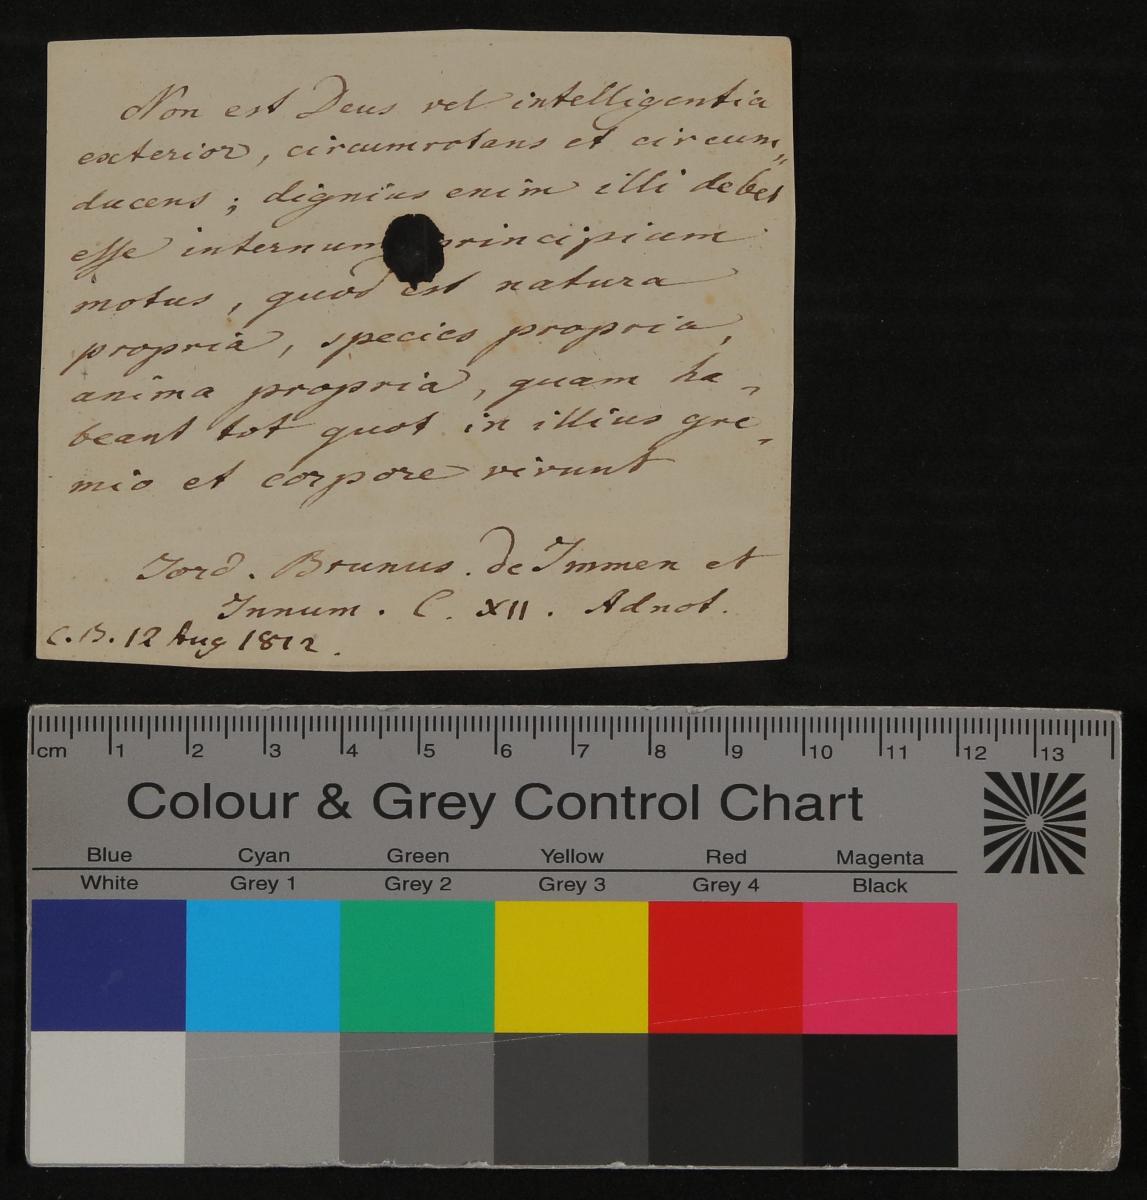 Non est Deus vel intelligentia
exterior, circumrotans et circum„
ducens; dignius enim illi debet
esse internum principium
motus, quod est natura
propria, species propria,
anima propria, quam ha„
beant tot quot in illius gre„
mio et corpore vivunt
Jord. Brunus. de Immen et
Innum. C. XII. Adnot.
C.B. 12 Aug 1812.
cm 1 2 3 4 5 6 7 8 9 10 11 12 13
Colour & Grey Control Chart
Blue Cyan Green Yellow Red Magenta
White Grey 1 Grey 2 Grey 3 Grey 4 Black